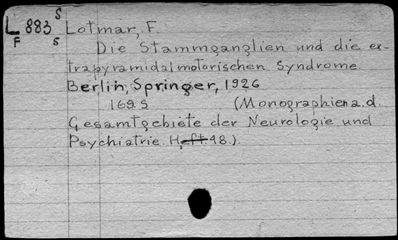 S
L 883 Lotmar, F
F S
Die Stammganglien und die ex-
trapyramidalmotorischen Syndrome.
Berlin, Springer, 1926
169 S (Monographien a. d.
Gesamtgebiete der Neurologie und
Psychiatrie. Heft 48.)